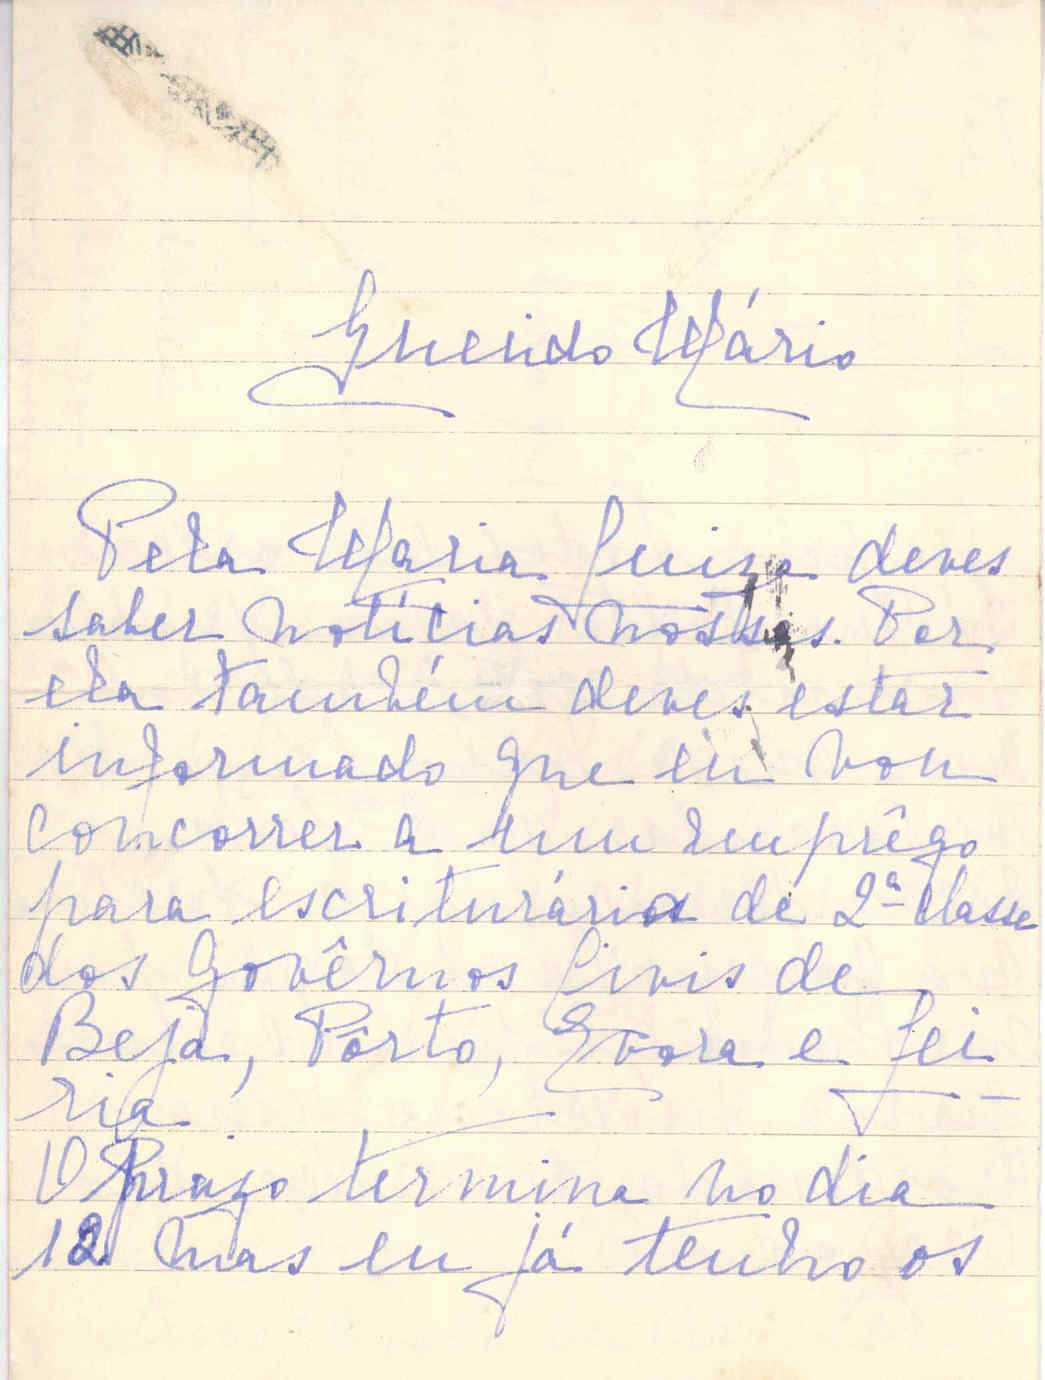 Querido Mário
Pela Maria Luiza deves
saber notícias nossas. Por
ela também deves estar
informado que eu vou
concorrer a um emprêgo
para escriturária de 2ª classe
dos Govêrnos Civis de
Beja, Pôrto, Évora e Lei-
ria.
O prazo termina no dia
12 mas eu já tenho os